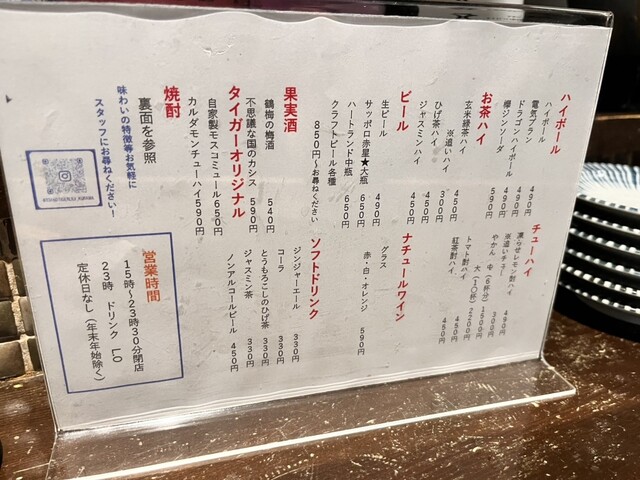 ハイボール
ハイボール 490円
電気ブラン 490円
ドラゴンハイボール 490円
欅ジンソーダ 590円
お茶ハイ
玄米緑茶ハイ 450円
※追いハイ 300円
ひげ茶ハイ 450円
ジャスミンハイ 450円
ビール
生ビール 490円
サッポロ赤星★大瓶 650円
ハートランド中瓶 650円
クラフトビール各種
850円〜お尋ねください
果実酒
鶴梅の梅酒 540円
不思議な国のカシス 590円
タイガーオリジナル
自家製モスコミュール 650円
カルダモンチューハイ 590円
焼酎
裏面を参照
味わいの特徴等お気軽に
スタッフにお尋ねください!
チューハイ
凍らせレモン酎ハイ 490円
※追いチュー 300円
やかん 中(6杯分) 1500円
大(10杯) 2200円
トマト酎ハイ 450円
紅茶酎ハイ 450円
ナチュールワイン
グラス
赤・白・オレンジ 590円
ソフトドリンク
ジンジャーエール 330円
コーラ 330円
とうもろこしのひげ茶 330円
ジャスミン茶 330円
ノンアルコールビール 450円
営業時間
15時〜23時30分閉店
23時 ドリンク LO
定休日なし(年末年始除く)